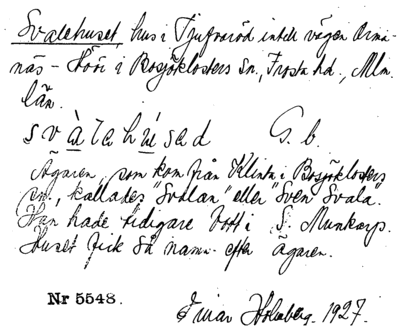 Svalehuset, hus i Tjufvaröd intill vägen Orma-
näs - Höör i Bosjöklosters sn., Frosta hd., Mlm.
län.
svàlehúsed G. b.
Ägaren, som kom från Klinta i Bosjöklosters
sn., kallades "Svalan" eller "Sven Svala".
Han hade tidigare bott i S. Munkarp.
Huset fick så namn efter ägaren.
Nr 5548.
Einar Holmberg. 1927.